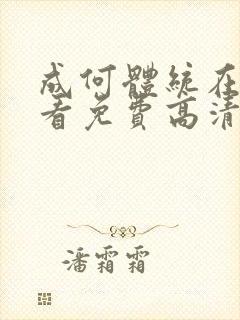 成何體統在
看免費高清
潘霜霜